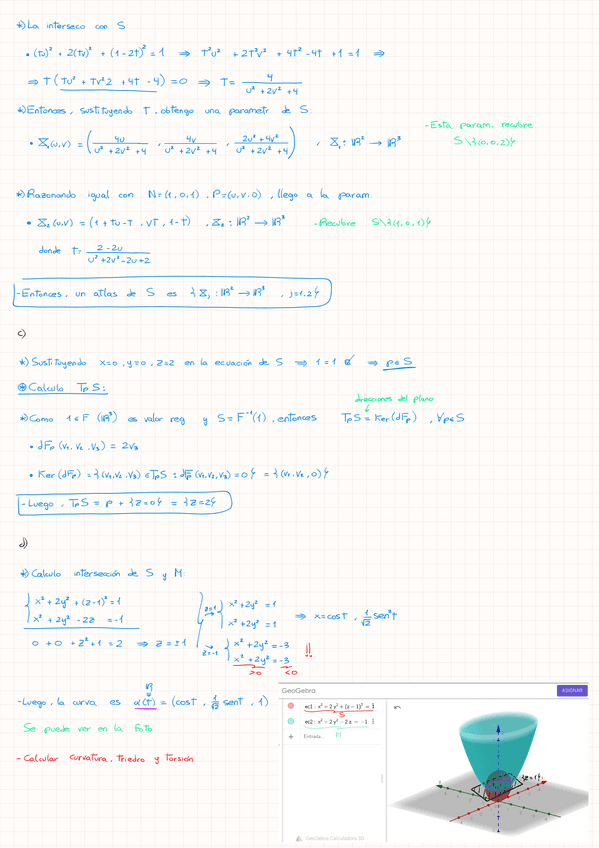 *) La interseco con S
• (tu)² + 2(tv)² + (1-2t)² = 1 ⇒ t²u² + 2t²v² + 4t² - 4t + 1 = 1 ⇒
⇒ t (tu² + tv²2 + 4t - 4) = 0 ⇒ t = 4/(u² + 2v² + 4)
*) Entonces, sustituyendo t, obtengo una parametr de S:
• X₁(u,v) = (4u/(u² + 2v² + 4), 4v/(u² + 2v² + 4), (2u² + 4v²)/(u² + 2v² + 4)), X₁: ℝ² → ℝ³
- Esta param. recubre
S\{(0,0,2)}
*) Razonando igual con N=(1,0,1), P=(u,v,0), llego a la param
• X₂(u,v) = (1 + tu - t, vt, 1-t), X₂: ℝ² → ℝ³ - Recubre S\{(1,0,1)}
donde t = (2-2u)/(u² + 2v² - 2u + 2)
- Entonces, un atlas de S es {Xⱼ: ℝ² → ℝ³, j=1,2}
c)
*) Sustituyendo x=0, y=0, z=2 en la ecuación de S ⇒ 1=1 ☑ ⇒ p∈S
⊛ Calculo TpS:
direcciones del plano
*) Como 1∈F(ℝ³) es valor reg y S=F⁻¹(1), entonces TpS = Ker(dFp), ∀p∈S
• dFp(v₁,v₂,v₃) = 2v₃
• Ker(dFp) = {(v₁,v₂,v₃)∈TpS : dFp(v₁,v₂,v₃)=0} = {(v₁,v₂,0)}
- Luego, TpS = p + {z=0} = {z=2}
d)
*) Calculo intersección de S y M:
x² + 2y² + (z-1)² = 1
x² + 2y² - 2z = -1
0 + 0 + z² + 1 = 2 ⇒ z = ±1
z=1 → x² + 2y² = 1
x² + 2y² = 1 ⇒ x = cos t, 1/√2 sen²t
z=-1 → x² + 2y² = -3
x² + 2y² = -3 !!
>0 <0
ℝ
- Luego, la curva es α(t) = (cos t, 1/√2 sen t, 1)
Se puede ver en la foto
- Calcular curvatura, triedro y torsión
GeoGebra
ASIGNAR
ec1: x² + 2y² + (z − 1)² = 1
S
ec2: x² + 2y² − 2z = −1
M
+ Entrada...
{z=1}
GeoGebra Calculadora 3D